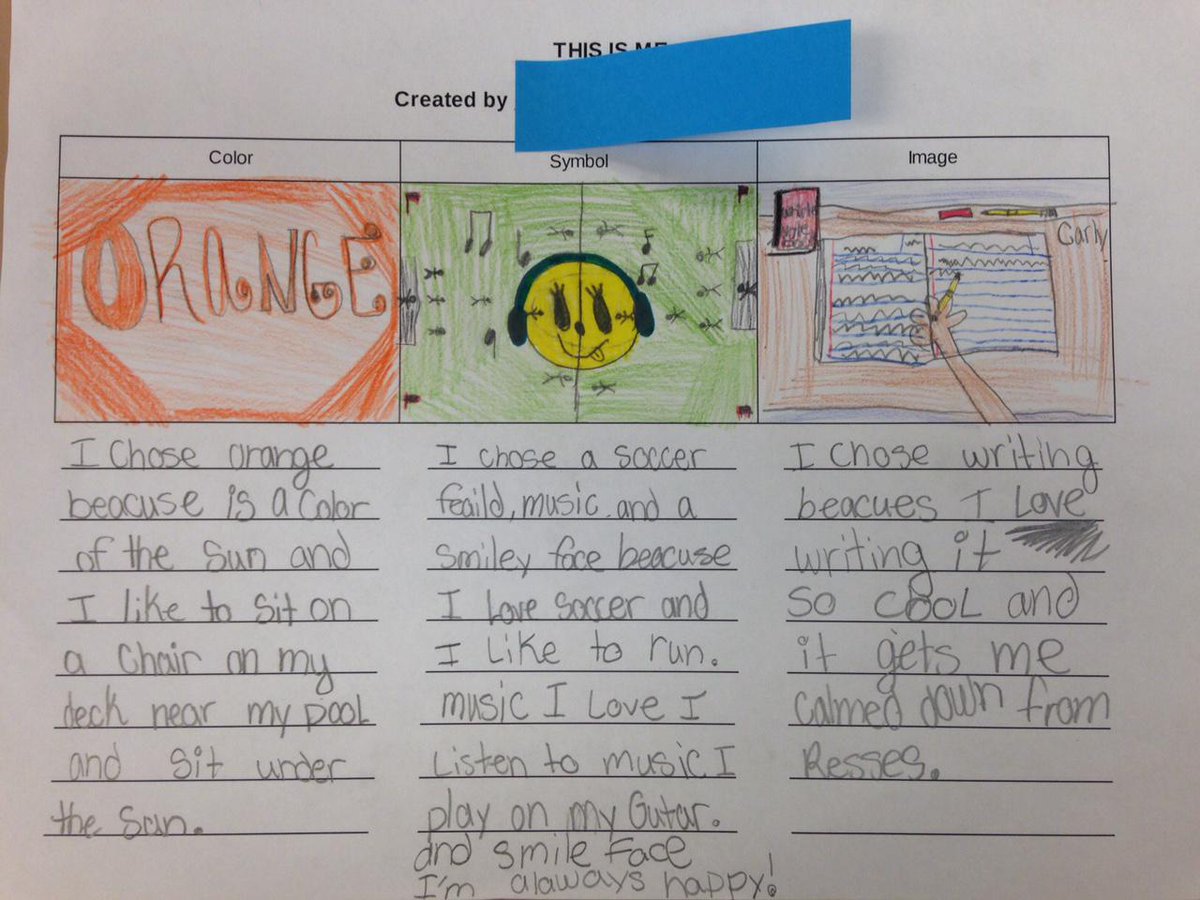 THIS IS ME
Created by
Color
Symbol
Image
ORANGE
Carly
I Chose orange
beacuse is a Color
of the Sun and
I like to Sit on
a Chair on my
deck near my pool
and Sit under
the Sun.
I chose a soccer
feaild, music, and a
smiley face beacuse
I Love Soccer and
I Like to run.
music I Love I
Listen to music I
play on my Gutar.
and smile Face
I'm alaways happy!
I Chose writing
beacues I Love
writing it
so cooL and
it gets me
calmed down from
Resses.